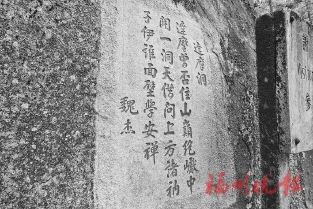 達摩洞
達摩曾否住山巔絕巘中
開一洞天借問上方諸衲
子伊誰面壁學安禪
魏杰
福州晚報